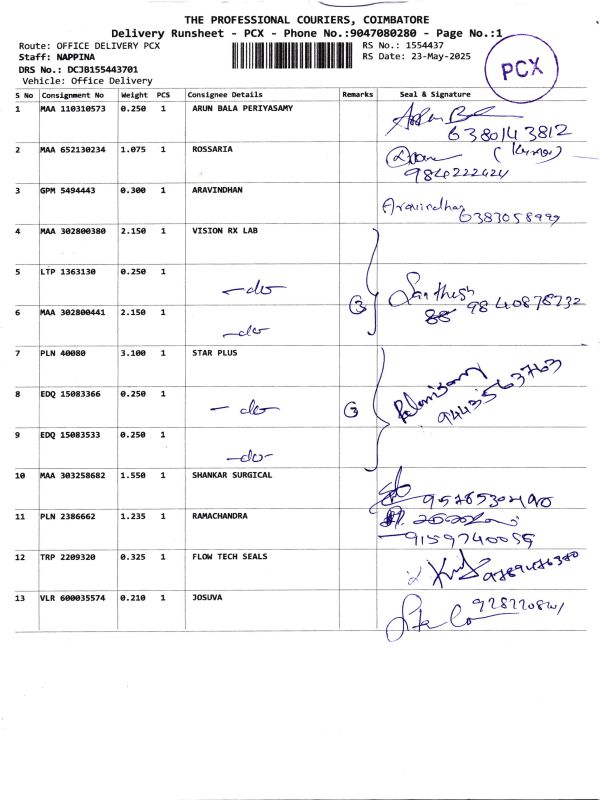 THE PROFESSIONAL COURIERS, COIMBATORE
Delivery Runsheet - PCX - Phone No.:9047080280 - Page No.:1
Route: OFFICE DELIVERY PCX RS No.: 1554437
Staff: NAPPINA RS Date: 23-May-2025
DRS No.: DCJB155443701
Vehicle: Office Delivery
PCX
S No Consignment No Weight PCS Consignee Details Remarks Seal & Signature
1 MAA 110310573 0.250 1 ARUN BALA PERIYASAMY
6380143812
2 MAA 652130234 1.075 1 ROSSARIA (Kumar)
9842222424
3 GPM 5494443 0.300 1 ARAVINDHAN Aravindhan
6383058999
4 MAA 302800380 2.150 1 VISION RX LAB
5 LTP 1363130 0.250 1 -do-
③ Santhosh
9840878732
6 MAA 302800441 2.150 1 -do-
7 PLN 40080 3.100 1 STAR PLUS
8 EDQ 15083366 0.250 1 -do- ③ Palanisamy
9443563763
9 EDQ 15083533 0.250 1 -do-
10 MAA 303258682 1.550 1 SHANKAR SURGICAL
11 PLN 2386662 1.235 1 RAMACHANDRA
9159740055
12 TRP 2209320 0.325 1 FLOW TECH SEALS
13 VLR 600035574 0.210 1 JOSUVA